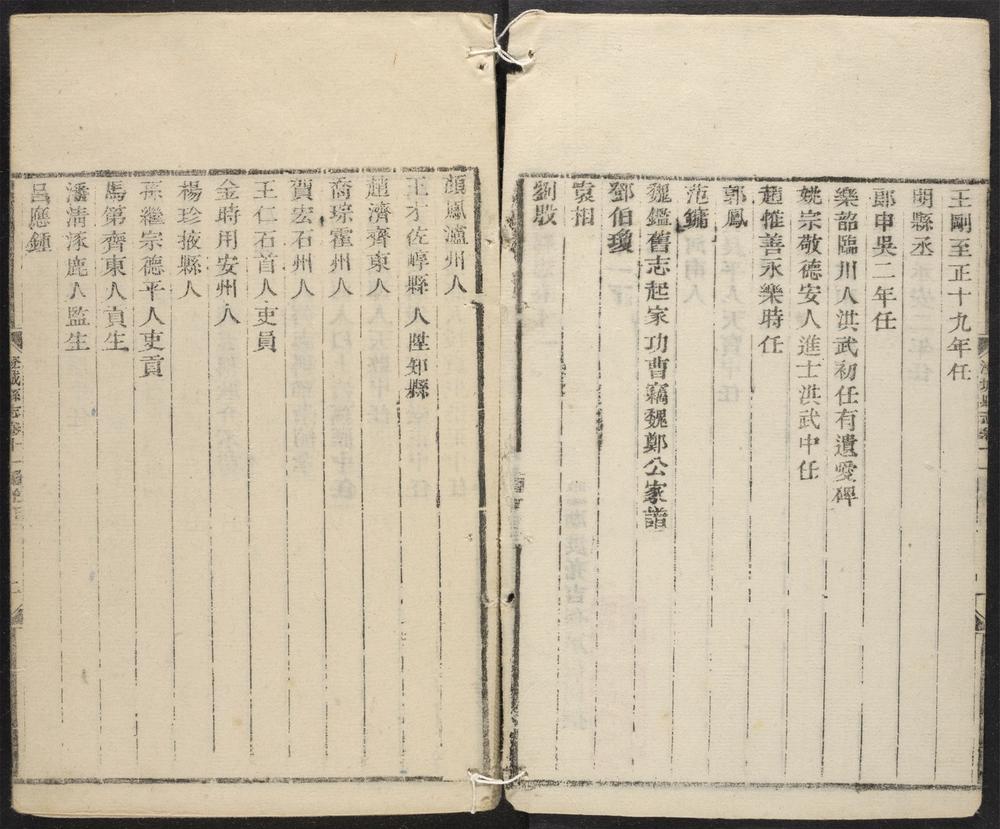 王剛至正十九年任
明縣丞
郎申吳二年任
樂韶臨川人洪武初任有遺愛碑
姚宗敬德安人進士洪武中任
趙惟善永樂時任
郭鳳
范鏞
魏鑑舊志起家功曹竊魏鄭公家譜
鄧伯瓊
袁相
劉殷
顏鳳瀘州人
王才佐嶧縣人陞知縣
趙濟齊東人
喬琮霍州人
賈宏石州人
王仁石首人吏員
金時用安州人
楊珍掖縣人
孫繼宗德平人吏貢
馬第齊東人貢生
潘淸涿鹿人監生
呂應鍾